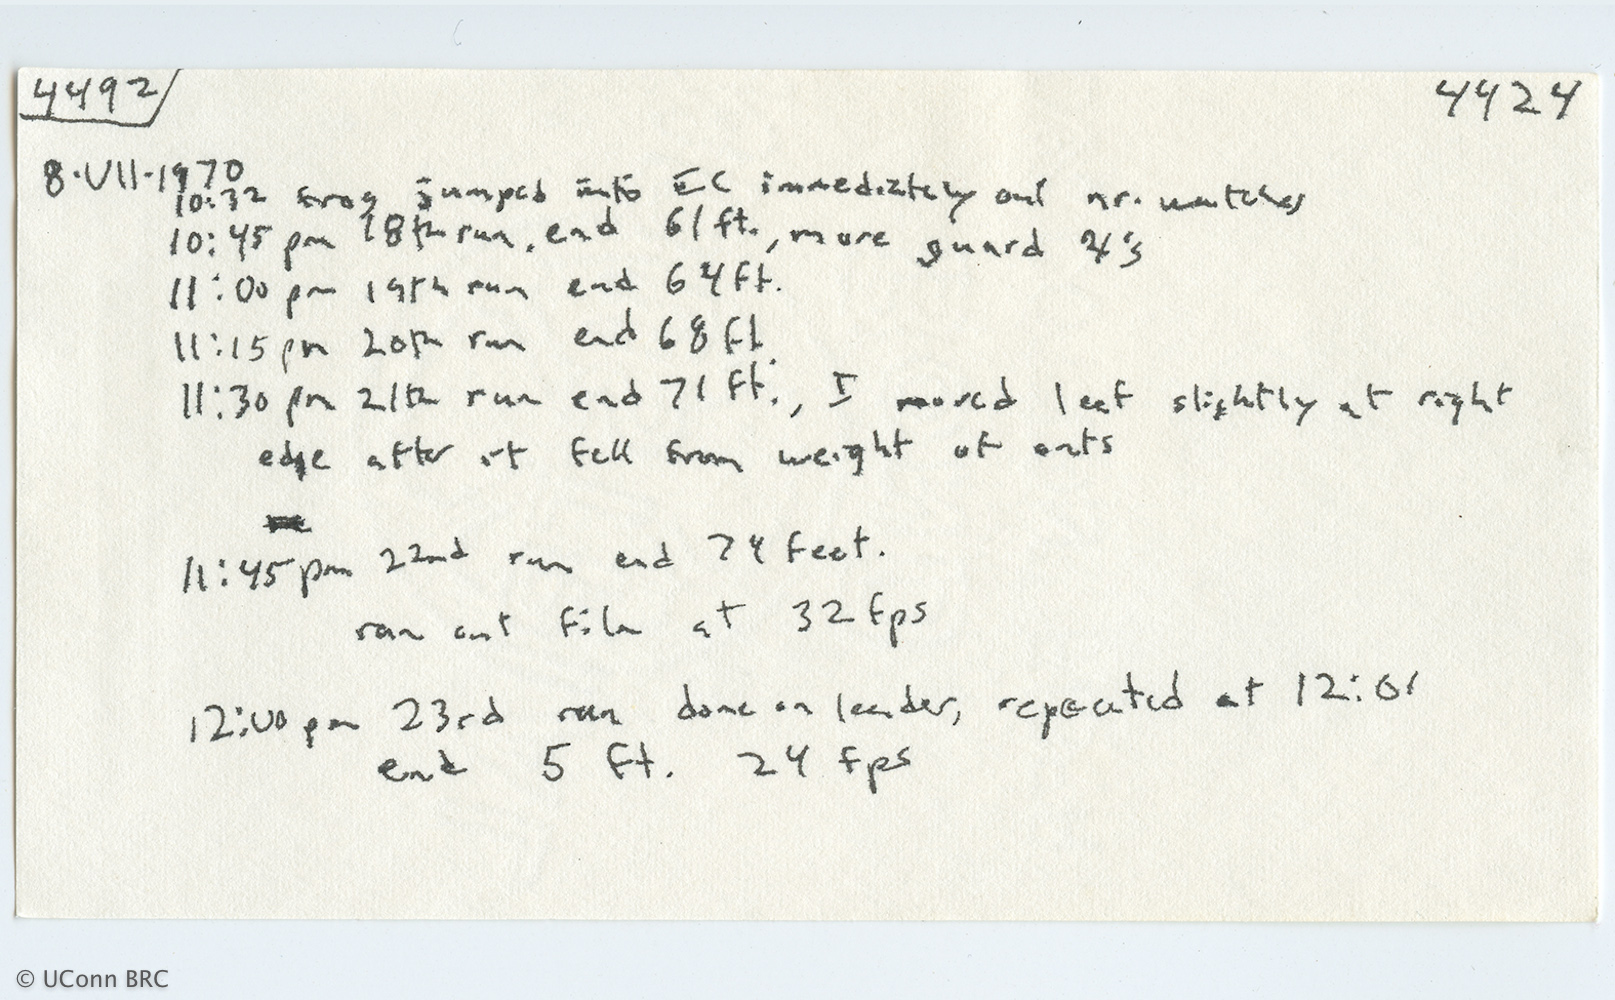 4492
4424
8·VII·1970
10:32 frog jumped into EC immediately out nr. watches
10:45 pm 18th run, end 61 ft., more guard 4's
11:00 pm 19th run end 64 ft.
11:15 pm 20th run end 68 ft
11:30 pm 21th run end 71 ft., I moved leaf slightly at right
edge after it fell from weight of ants
11:45 pm 22nd run end 74 feet.
ran out film at 32 fps
12:00 pm 23rd run done on leader, repeated at 12:01
end 5 ft. 24 fps
© UConn BRC